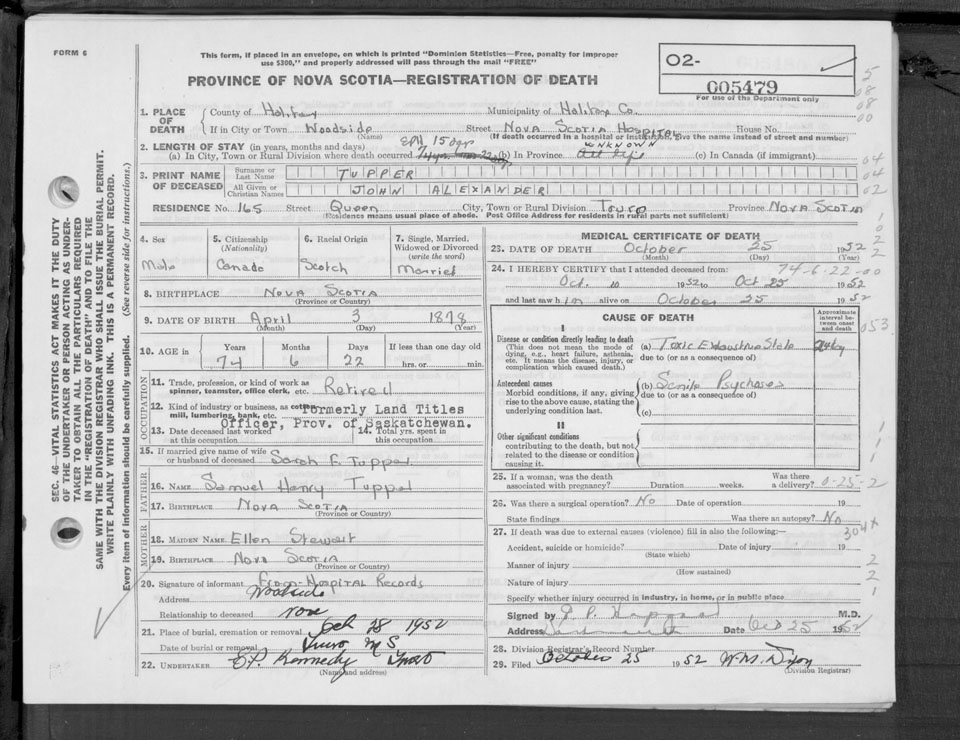 FORM 6
This form, if placed in an envelope, on which is printed "Dominion Statistics—Free, penalty for improper
use $300," and properly addressed will pass through the mail "FREE"
PROVINCE OF NOVA SCOTIA—REGISTRATION OF DEATH
O2-
005479
For use of the Department only
SEC. 46—VITAL STATISTICS ACT MAKES IT THE DUTY
OF THE UNDERTAKER OR PERSON ACTING AS UNDER-
TAKER TO OBTAIN ALL THE PARTICULARS REQUIRED
IN THE "REGISTRATION OF DEATH" AND TO FILE THE
SAME WITH THE DIVISION REGISTRAR WHO SHALL ISSUE THE BURIAL PERMIT.
WRITE PLAINLY WITH UNFADING INK. THIS IS A PERMANENT RECORD.
Every item of information should be carefully supplied. (See reverse side for instructions.)
1. PLACE OF DEATH County of Halifax Municipality of Halifax Co.
If in City or Town Woodside Street Nova Scotia Hospital House No.
(Name) (If death occurred in a hospital or institution, give the name instead of street and number)
2. LENGTH OF STAY (in years, months and days) 15 dys unknown
(a) In City, Town or Rural Division where death occurred (b) In Province all life (c) In Canada (if immigrant)
3. PRINT NAME OF DECEASED
Surname or Last Name TUPPER
All Given or Christian Names JOHN ALEXANDER
RESIDENCE No. 165 Street Queen City, Town or Rural Division Truro Province Nova Scotia
(Residence means usual place of abode. Post Office Address for residents in rural parts not sufficient)
4. Sex Male
5. Citizenship (Nationality) Canada
6. Racial Origin Scotch
7. Single, Married, Widowed or Divorced (write the word) Married
8. BIRTHPLACE Nova Scotia
(Province or Country)
9. DATE OF BIRTH April 3 1878
(Month) (Day) (Year)
10. AGE in Years 74 Months 6 Days 22 If less than one day old hrs. or min.
OCCUPATION
11. Trade, profession, or kind of work as spinner, teamster, office clerk, etc. Retired
12. Kind of industry or business, as cotton mill, lumbering, bank, etc. Formerly Land Titles
Officer, Prov. of Saskatchewan.
13. Date deceased last worked at this occupation
14. Total yrs. spent in this occupation
15. If married give name of wife or husband of deceased Sarah E. Tupper
FATHER
16. NAME Samuel Henry Tupper
17. BIRTHPLACE Nova Scotia
(Province or Country)
MOTHER
18. MAIDEN NAME Ellen Stewart
19. BIRTHPLACE Nova Scotia
(Province or Country)
20. Signature of informant From Hospital Records
Address Woodside
Relationship to deceased None
21. Place of burial, cremation or removal Oct 28 1952
Date of burial or removal Truro N S
22. UNDERTAKER Kennedy Truro
(Name and address)
MEDICAL CERTIFICATE OF DEATH
23. DATE OF DEATH October 25 1952
(Month) (Day) (Year)
74-6-22-00
24. I HEREBY CERTIFY that I attended deceased from:
Oct. 10 1952 to Oct 25 1952
and last saw him alive on October 25 1952
CAUSE OF DEATH
Approximate interval between onset and death
I
Disease or condition directly leading to death
(This does not mean the mode of dying, e.g., heart failure, asthenia, etc. It means the disease, injury, or complication which caused death.)
(a) Toxic Exhaustive State
due to (or as a consequence of)
Antecedent causes
Morbid conditions, if any, giving rise to the above cause, stating the underlying condition last.
(b) Senile Psychoses
due to (or as a consequence of)
(c)
II
Other significant conditions
contributing to the death, but not related to the disease or condition causing it.
25. If a woman, was the death associated with pregnancy? Duration weeks. Was there a delivery? 0-25-2
26. Was there a surgical operation? No Date of operation 19
State findings Was there an autopsy? No
27. If death was due to external causes (violence) fill in also the following:
Accident, suicide or homicide? Date of injury 19
(State which)
Manner of injury
(How sustained)
Nature of injury
Specify whether injury occurred in industry, in home, or in public place
Signed by M.D.
Address Dartmouth Date Oct 25 1952
28. Division Registrar's Record Number
29. Filed October 25 1952 W. M. Dixon
(Division Registrar)